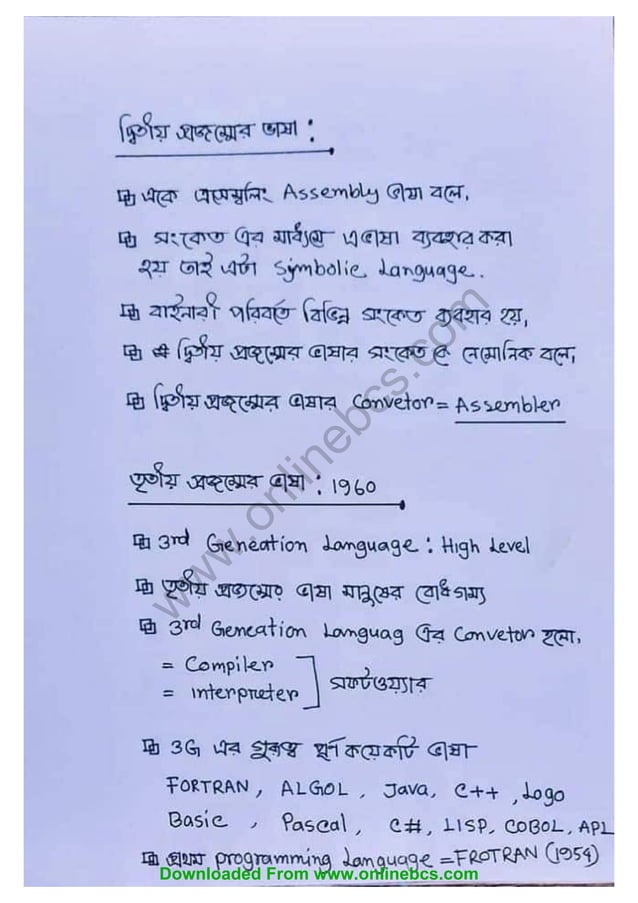 দ্বিতীয় প্রজন্মের ভাষা :
একে এসেম্বলিং Assembly ভাষা বলে,
সংকেত এর মাধ্যমে এভাষা ব্যবহার করা
হয় তাই এটা Symbolic Language.
বাইনারী পরিবর্তে বিভিন্ন সংকেত ব্যবহার হয়,
দ্বিতীয় প্রজন্মের ভাষার সংকেত কে নেমোনিক বলে,
দ্বিতীয় প্রজন্মের ভাষার Convetor = Assembler
তৃতীয় প্রজন্মের ভাষা : 1960
3rd Geneation Language : High Level
তৃতীয় প্রজন্মের ভাষা মানুষের বোধগম্য
3rd Geneation Languag এর Convetor হলো,
= Compiler
= interpreter ] সফটওয়্যার
3G এর গুরুত্ব পূর্ণ কয়েকটি ভাষা
FORTRAN, ALGOL, Java, C++, Logo
Basic, Pascal, C#, LISP, COBOL, APL
প্রথম programming Language = FROTRAN (1954)
www.onlinebcs.com
Downloaded From www.onlinebcs.com